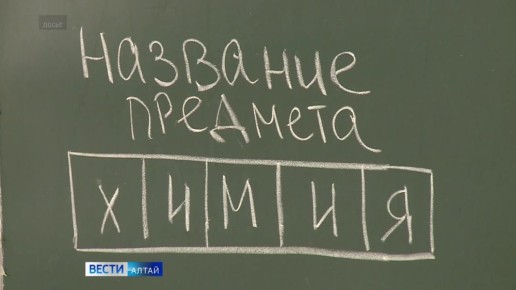 ДОСЬЕ
Название
предмета
ХИМИЯ
ВЕСТИ АЛТАЙ